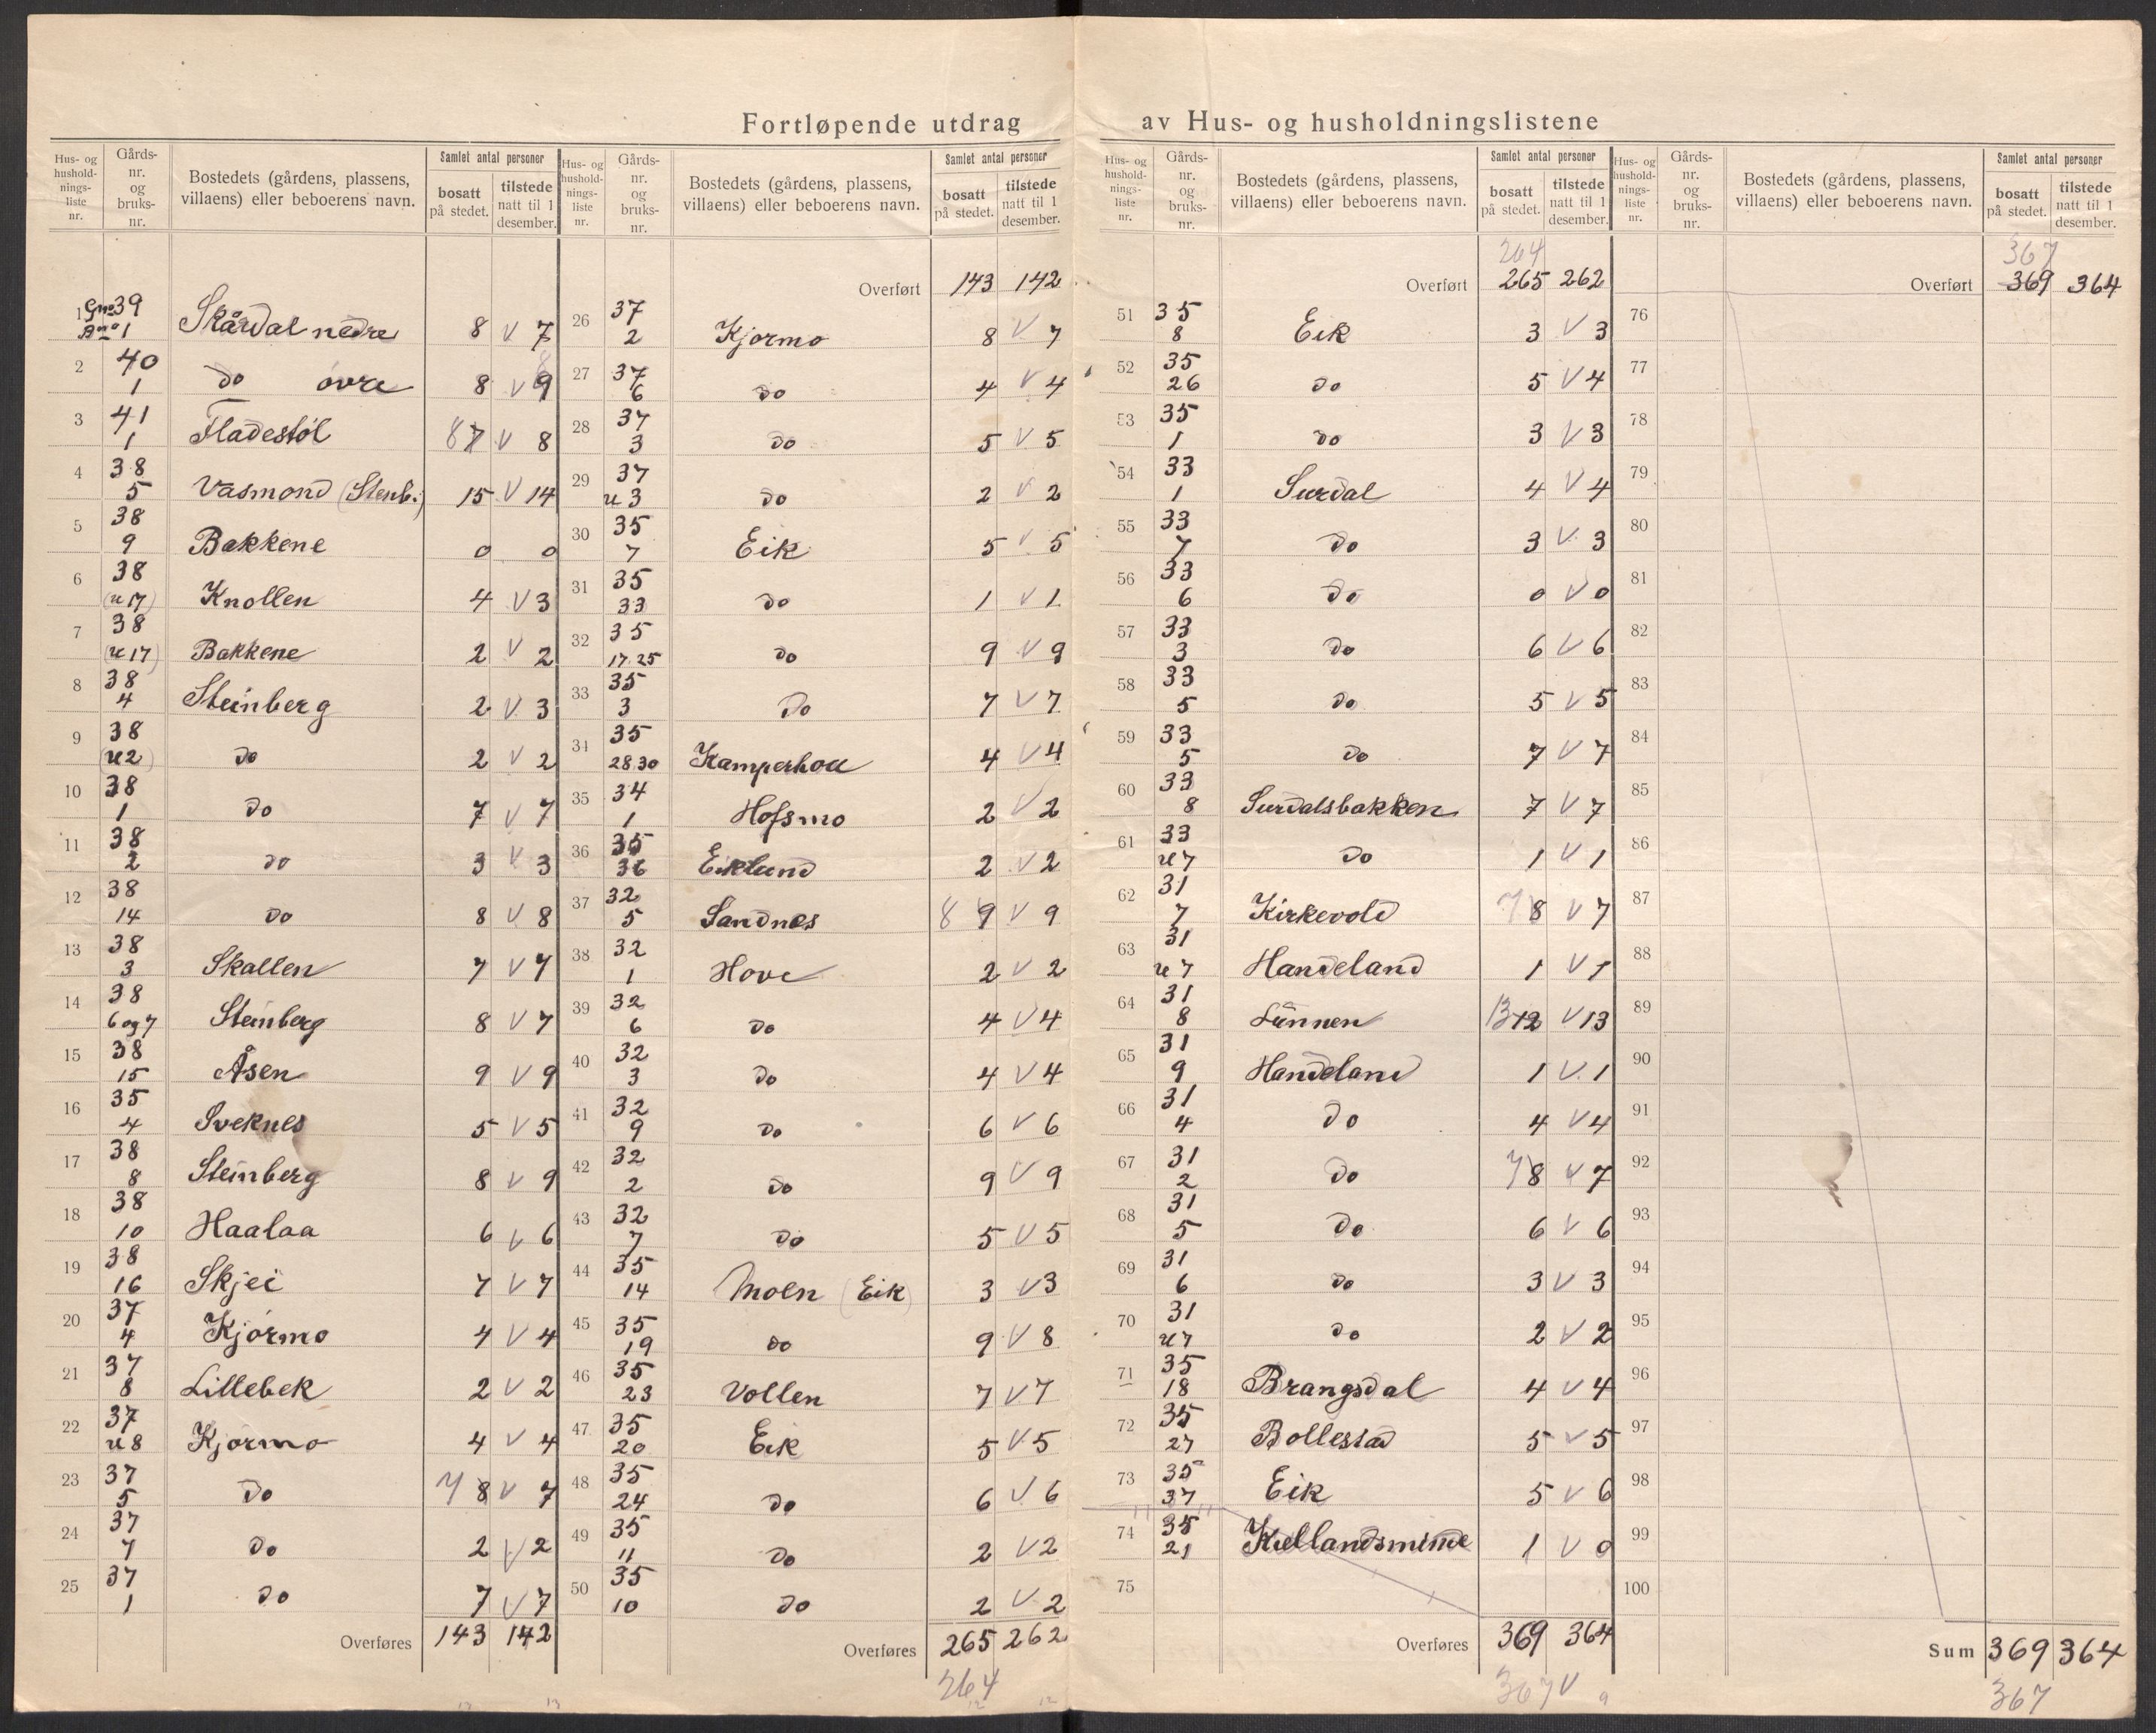 Fortløpende utdrag av Hus- og husholdningslistene
Hus- og hushold-nings-liste nr. | Gårds-nr. og bruks-nr. | Bostedets (gårdens, plassens, villaens) eller beboerens navn. | Samlet antal personer | bosatt på stedet. | tilstede natt til 1 desember.
1 Gno 39 Bno 1 Skårdal nedre 8 V 7
2 40 1 do øvre 8 V 9
3 41 1 Fladestøl 8 7 V 8
4 38 5 Vasmond (Stenb.) 15 V 14
5 38 9 Bakkene 0 0
6 38 (u 17) Knollen 4 V 3
7 38 (u 17) Bakkene 2 V 2
8 38 4 Steinberg 2 V 3
9 38 (u2) do 2 V 2
10 38 1 do 7 V 7
11 38 2 do 3 V 3
12 38 14 do 8 V 8
13 38 3 Skallen 7 V 7
14 38 6 og 7 Steinberg 8 V 7
15 38 15 Åsen 9 V 9
16 35 4 Sveknes 5 V 5
17 38 8 Steinberg 8 V 9
18 38 10 Haalaa 6 V 6
19 38 16 Skjei 7 V 7
20 37 4 Kjørmo 4 V 4
21 37 8 Lillebek 2 V 2
22 37 u 8 Kjørmo 4 V 4
23 37 5 do 7 8 V 7
24 37 7 do 2 V 2
25 37 1 do 7 V 7
Overføres 143 142
Hus- og hushold-nings-liste nr. | Gårds-nr. og bruks-nr. | Bostedets (gårdens, plassens, villaens) eller beboerens navn. | Samlet antal personer | bosatt på stedet. | tilstede natt til 1 desember.
Overført 143 142
26 37 2 Kjørmo 8 V 7
27 37 6 do 4 V 4
28 37 3 do 5 V 5
29 37 u 3 do 2 V 2
30 35 7 Eik 5 V 5
31 35 33 do 1 V 1
32 35 17.25 do 9 V 9
33 35 3 do 7 V 7
34 35 28.30 Kamperhou 4 V 4
35 34 1 Hofsmo 2 V 2
36 35 36 Eiklund 2 V 2
37 32 5 Sandnes 8 9 V 9
38 32 1 Hove 2 V 2
39 32 6 do 4 V 4
40 32 3 do 4 V 4
41 32 9 do 6 V 6
42 32 2 do 9 V 9
43 32 7 do 5 V 5
44 35 14 Moen (Eik) 3 V 3
45 35 19 do 9 V 8
46 35 23 Vollen 7 V 7
47 35 20 Eik 5 V 5
48 35 24 do 6 V 6
49 35 11 do 2 V 2
50 35 10 do 2 V 2
Overføres 265 262
264
Hus- og hushold-nings-liste nr. | Gårds-nr. og bruks-nr. | Bostedets (gårdens, plassens, villaens) eller beboerens navn. | Samlet antal personer | bosatt på stedet. | tilstede natt til 1 desember.
264
Overført 265 262
51 35 8 Eik 3 V 3
52 35 26 do 5 V 4
53 35 1 do 3 V 3
54 33 1 Surdal 4 V 4
55 33 7 do 3 V 3
56 33 6 do 0 V 0
57 33 3 do 6 V 6
58 33 5 do 5 V 5
59 33 5 do 7 V 7
60 33 8 Surdalsbakken 7 V 7
61 33 u 7 do 1 V 1
62 31 7 Kirkevold 7 8 V 7
63 31 u 7 Handeland 1 V 1
64 31 8 Lunnen 13 12 V 13
65 31 9 Handeland 1 V 1
66 31 4 do 4 V 4
67 31 2 do 7 8 V 7
68 31 5 do 6 V 6
69 31 6 do 3 V 3
70 31 u 7 do 2 V 2
71 35 18 Brangsdal 4 V 4
72 35 27 Bollestad 5 V 5
73 35 37 Eik 5 V 6
74 35 21 Kiellandsminde 1 V 0
75
Overføres 369 364
367 V
Hus- og hushold-nings-liste nr. | Gårds-nr. og bruks-nr. | Bostedets (gårdens, plassens, villaens) eller beboerens navn. | Samlet antal personer | bosatt på stedet. | tilstede natt til 1 desember.
367
Overført 369 364
76
77
78
79
80
81
82
83
84
85
86
87
88
89
90
91
92
93
94
95
96
97
98
99
100
Sum 369 364
367